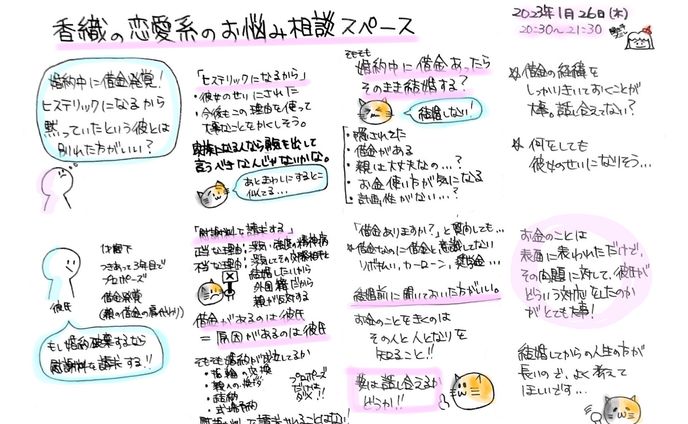 香織の恋愛系のお悩み相談スペース
2023年1月26日(木)
20:30〜21:30
婚約中に借金発覚!
ヒステリックになるから
黙っていたという彼とは
別れた方がいい?
彼氏
付き合って3年目で
プロポーズ
借金発覚
(親の借金の肩代わり)
もし婚約破棄するなら
慰謝料を請求する!!
「ヒステリックになるから」
・彼女のせいにされた
・今後もこの理由を使って
大事なことをかくしそう。
言うべきなんじゃないかな。
あとまわしにするとこ
似てる…
「慰謝料を請求する」
正当な理由:
不当な理由:
結婚したいから
外国籍だから
親が反対する
借金があるのは彼氏
=原因があるのは彼氏
そもそも婚約が成立してるか
・指輪の交換
・親への挨拶
・結納
・式場予約
プロポーズ
だけは
ダメ!!
そもそも
婚約中に借金あったら
そのまま結婚する?
結婚しない!
・騙されてた
・借金がある
・親は大丈夫なの…?
・お金使い方が気になる
・計画性がない…?
「借金ありますか?」と質問しても…
借金なのに借金と意識してない
リボ払い、カーローン、奨学金…
結婚前に聞いておいた方がいい。
お金のことをきくのは
その人と人となりを
知ること!!
要は話し合えるか
どうか!!
借金の経緯を
しっかりきいておくことが
大事。話し合えてない?
何をしても
彼女のせいになりそう…
お金のことは
表面に表われただけで、
その問題に対して、彼氏が
どういう対応をしたのか
がとても大事!
結婚してからの人生の方が
長いので、よく考えて
ほしいです…